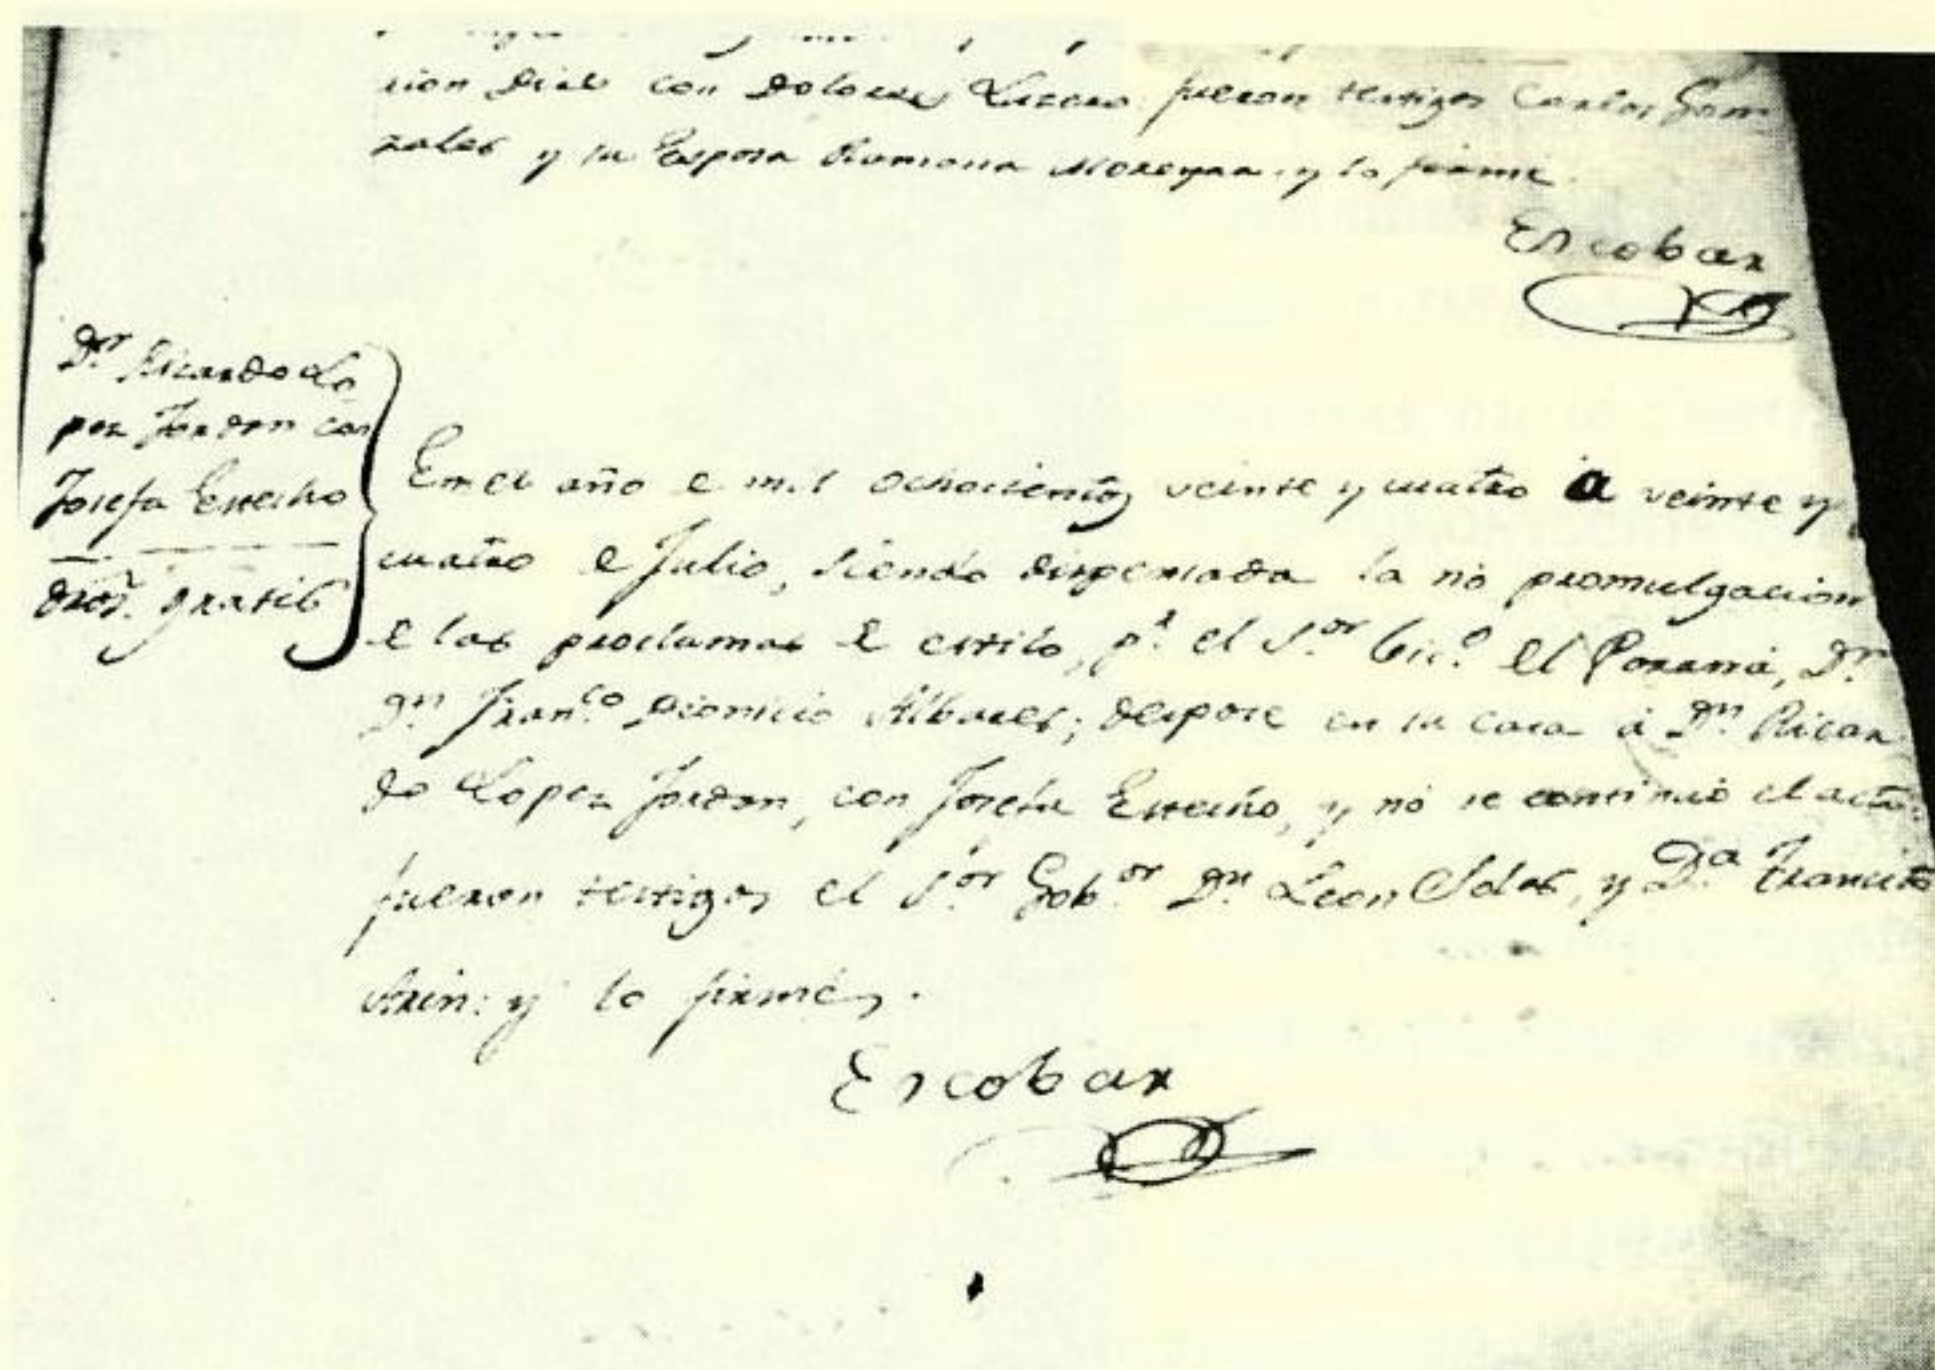 cion Diel con Dolores Lucero fueron testigos Carlos Gon
zales y su Esposa Ramona Moreyra. y lo firme.
Escobar
Dn. Ricardo Lo
pez Jordan con
Josefa
gratis
En el año e mil ochocientos veinte y cuatro a veinte y
cuatro e Julio, siendo dispensada la no promulgacion
e las proclamas e estilo, pr. el S.or Vic.o el Paraná, Dr.
Dn. Fran.co Dionicio Albares; despose en su casa á Dn. Ricar
do Lopez Jordan, con Josefa y no se continuó el acto:
fueron testigos el S.or Gob.or Dn. Leon Solas, y D.a Transito
y lo firmé.
Escobar